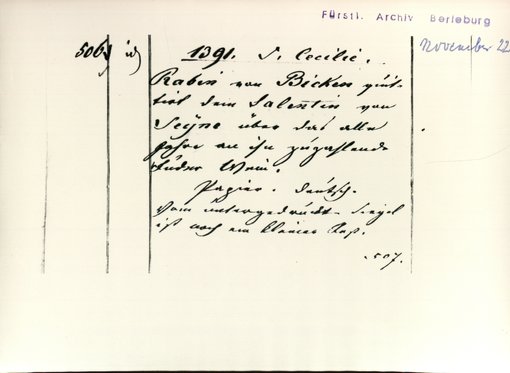 Fürstl. Archiv Berleburg
November 22
506) id)
1391. S. Cecilie.
Rabin von Bicken quit-
tirt dem Salentin von
Seyne über das alle
Jahre an ihn zuzahlende
Fuder Wein.
Papier. deutsch.
Vom untergedrückt. Siegel
ist noch ein kleiner Rest.
507.